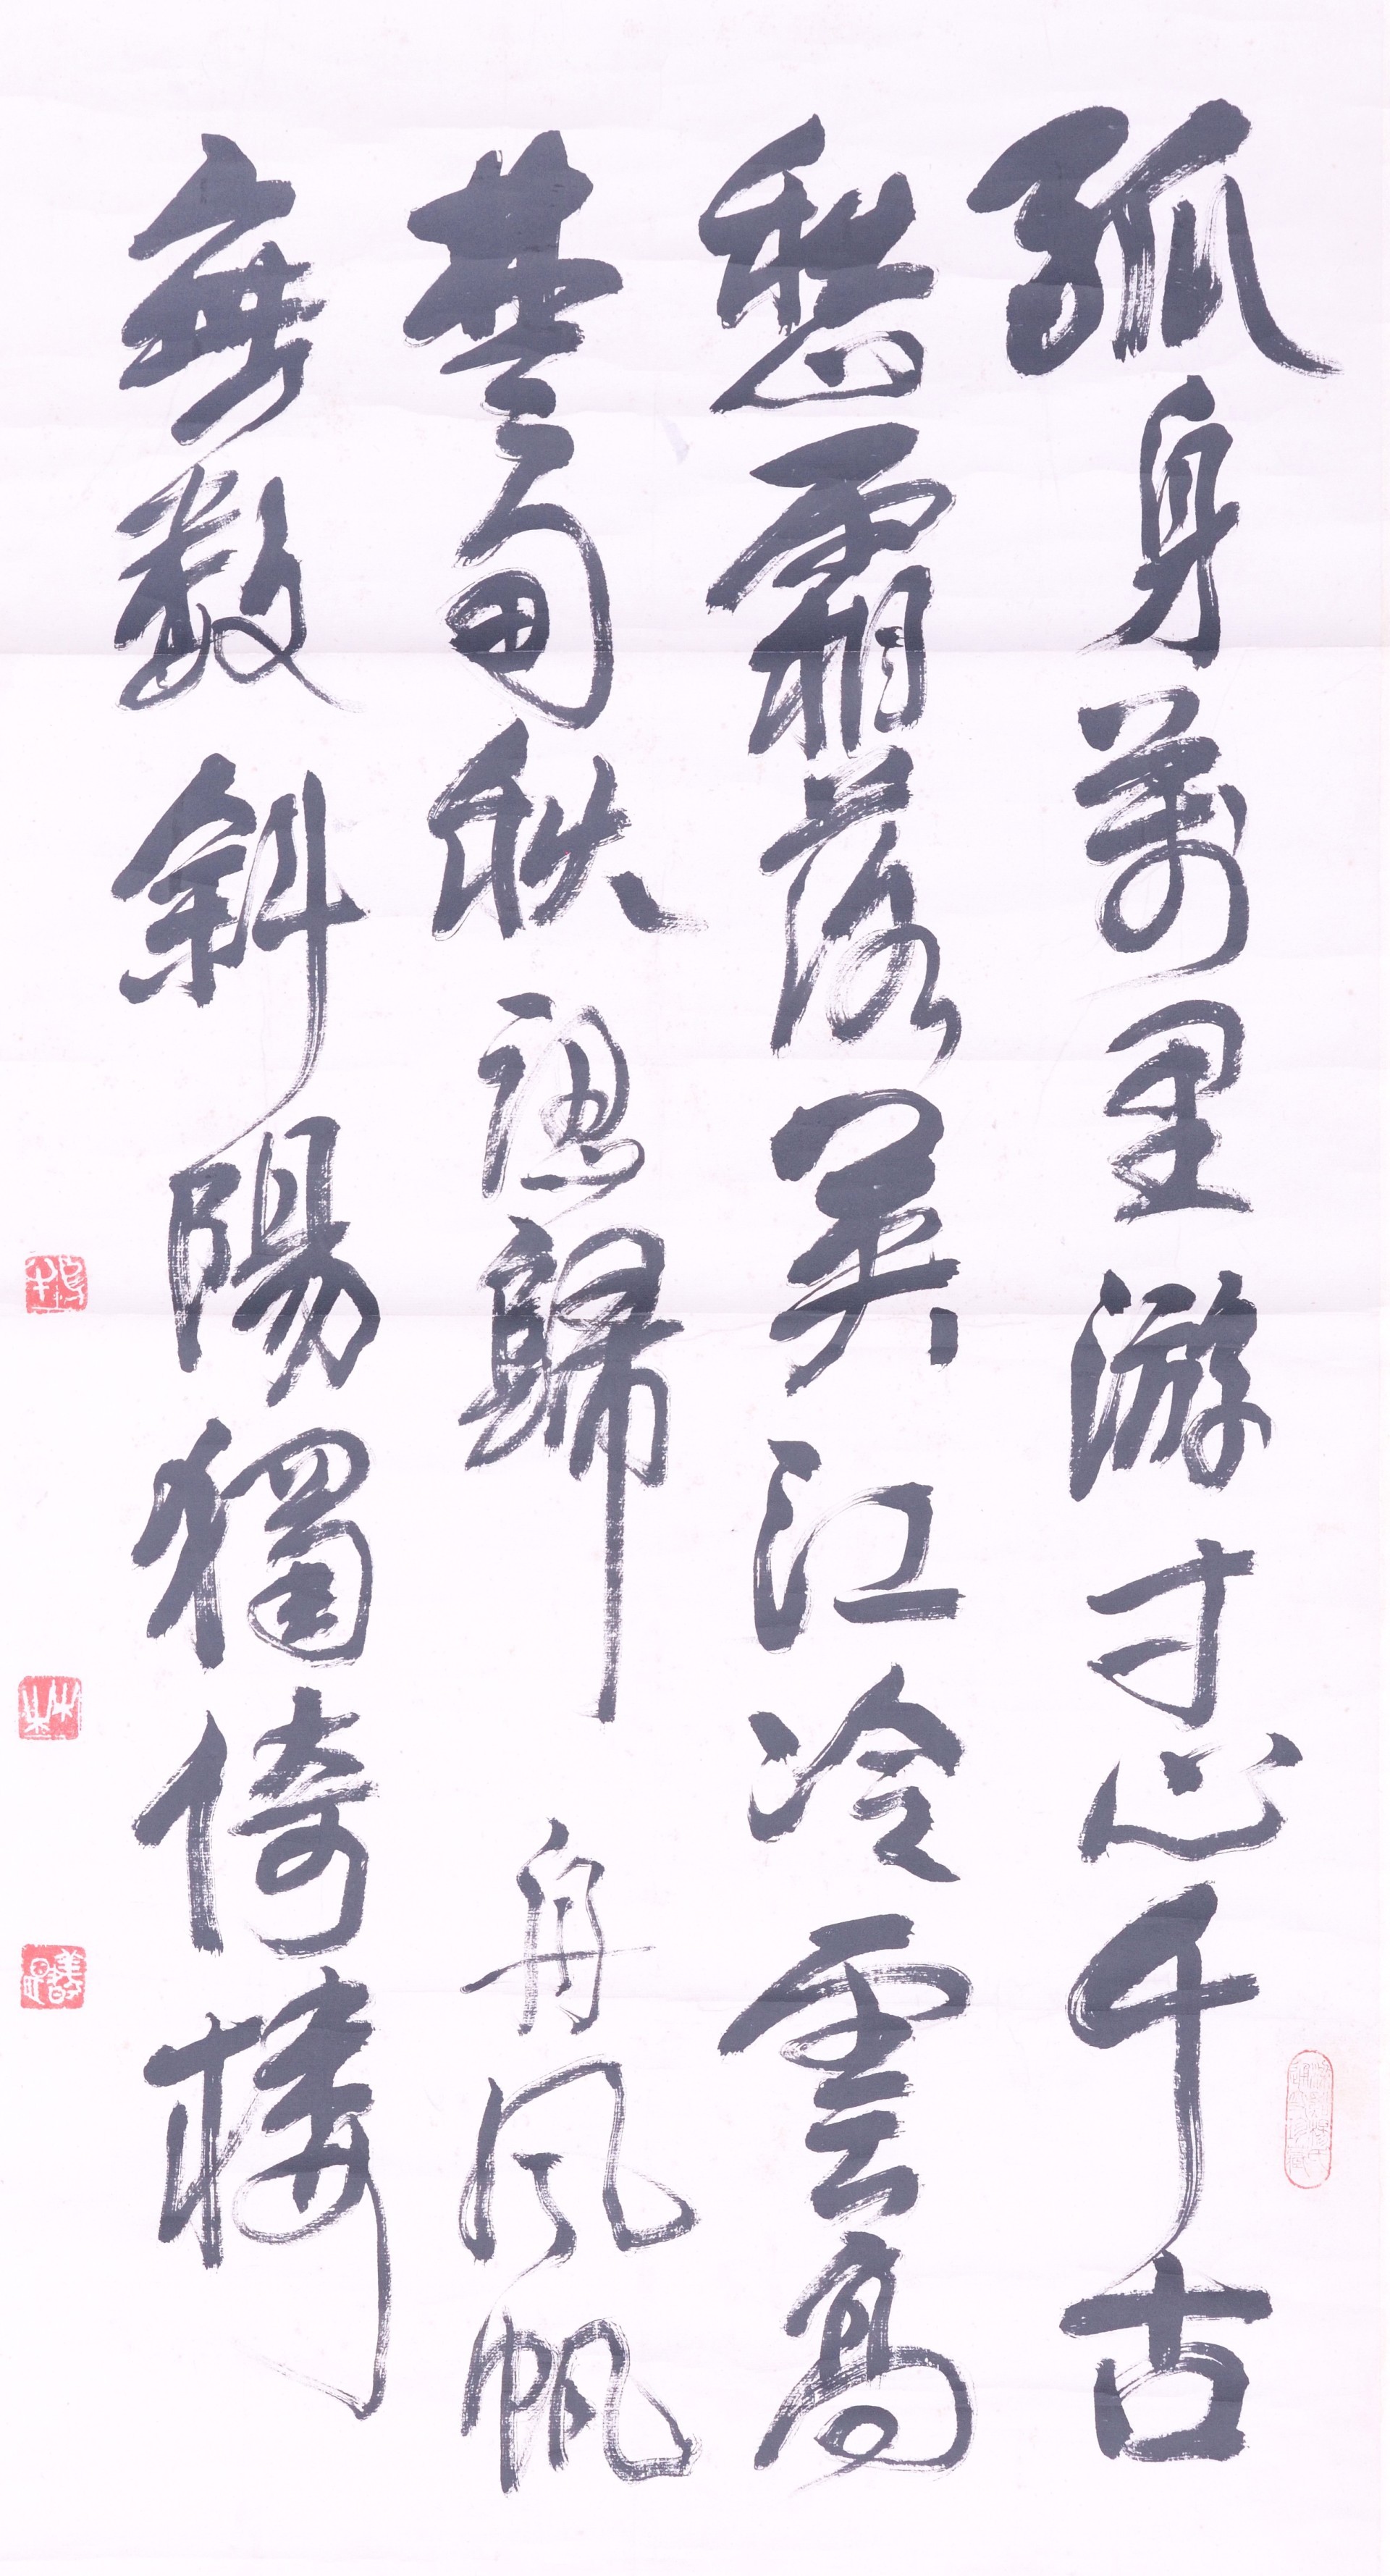 孤身萬里游寸心千古
愁霜落吳江冷雲高
楚甸秋認歸舟風帆
無數斜陽獨倚樓